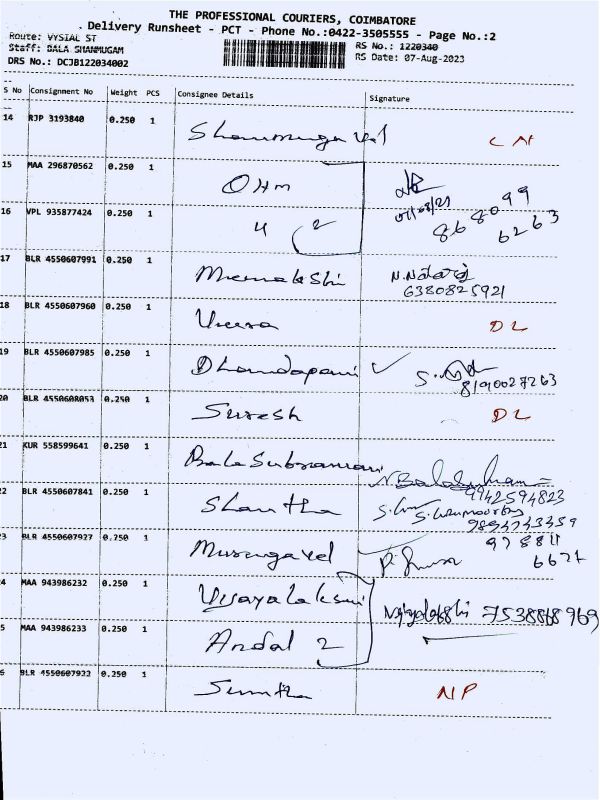 THE PROFESSIONAL COURIERS, COIMBATORE
Delivery Runsheet - PCT - Phone No.:0422-3505555 - Page No.:2
Route: VYSIAL ST
RS No.: 1220340
Staff: BALA SHANMUGAM
RS Date: 07-Aug-2023
DRS No.: DCJB122034002
S No Consignment No Weight PCS Consignee Details Signature
14 RJP 3193840 0.250 1 Shanmugavel CN
15 MAA 296870562 0.250 1 OHM
07/08/23 868099
16 VPL 935877424 0.250 1 4 2 6263
17 BLR 4550607991 0.250 1 Meenakshi N.Nataraj
6380825921
18 BLR 4550607960 0.250 1 Veera DL
19 BLR 4550607985 0.250 1 Dhandapani
8190027263
20 BLR 4550608053 0.250 1 Suresh DL
21 KUR 558599641 0.250 1 Bala Subramani
9942594823
22 BLR 4550607841 0.250 1 Shantha
23 BLR 4550607927 0.250 1 Murugavel 978811
6627
24 MAA 943986232 0.250 1 Vijayalaksmi 7538868969
25 MAA 943986233 0.250 1 Andal 2
26 BLR 4550607922 0.250 1 Sumitha NP